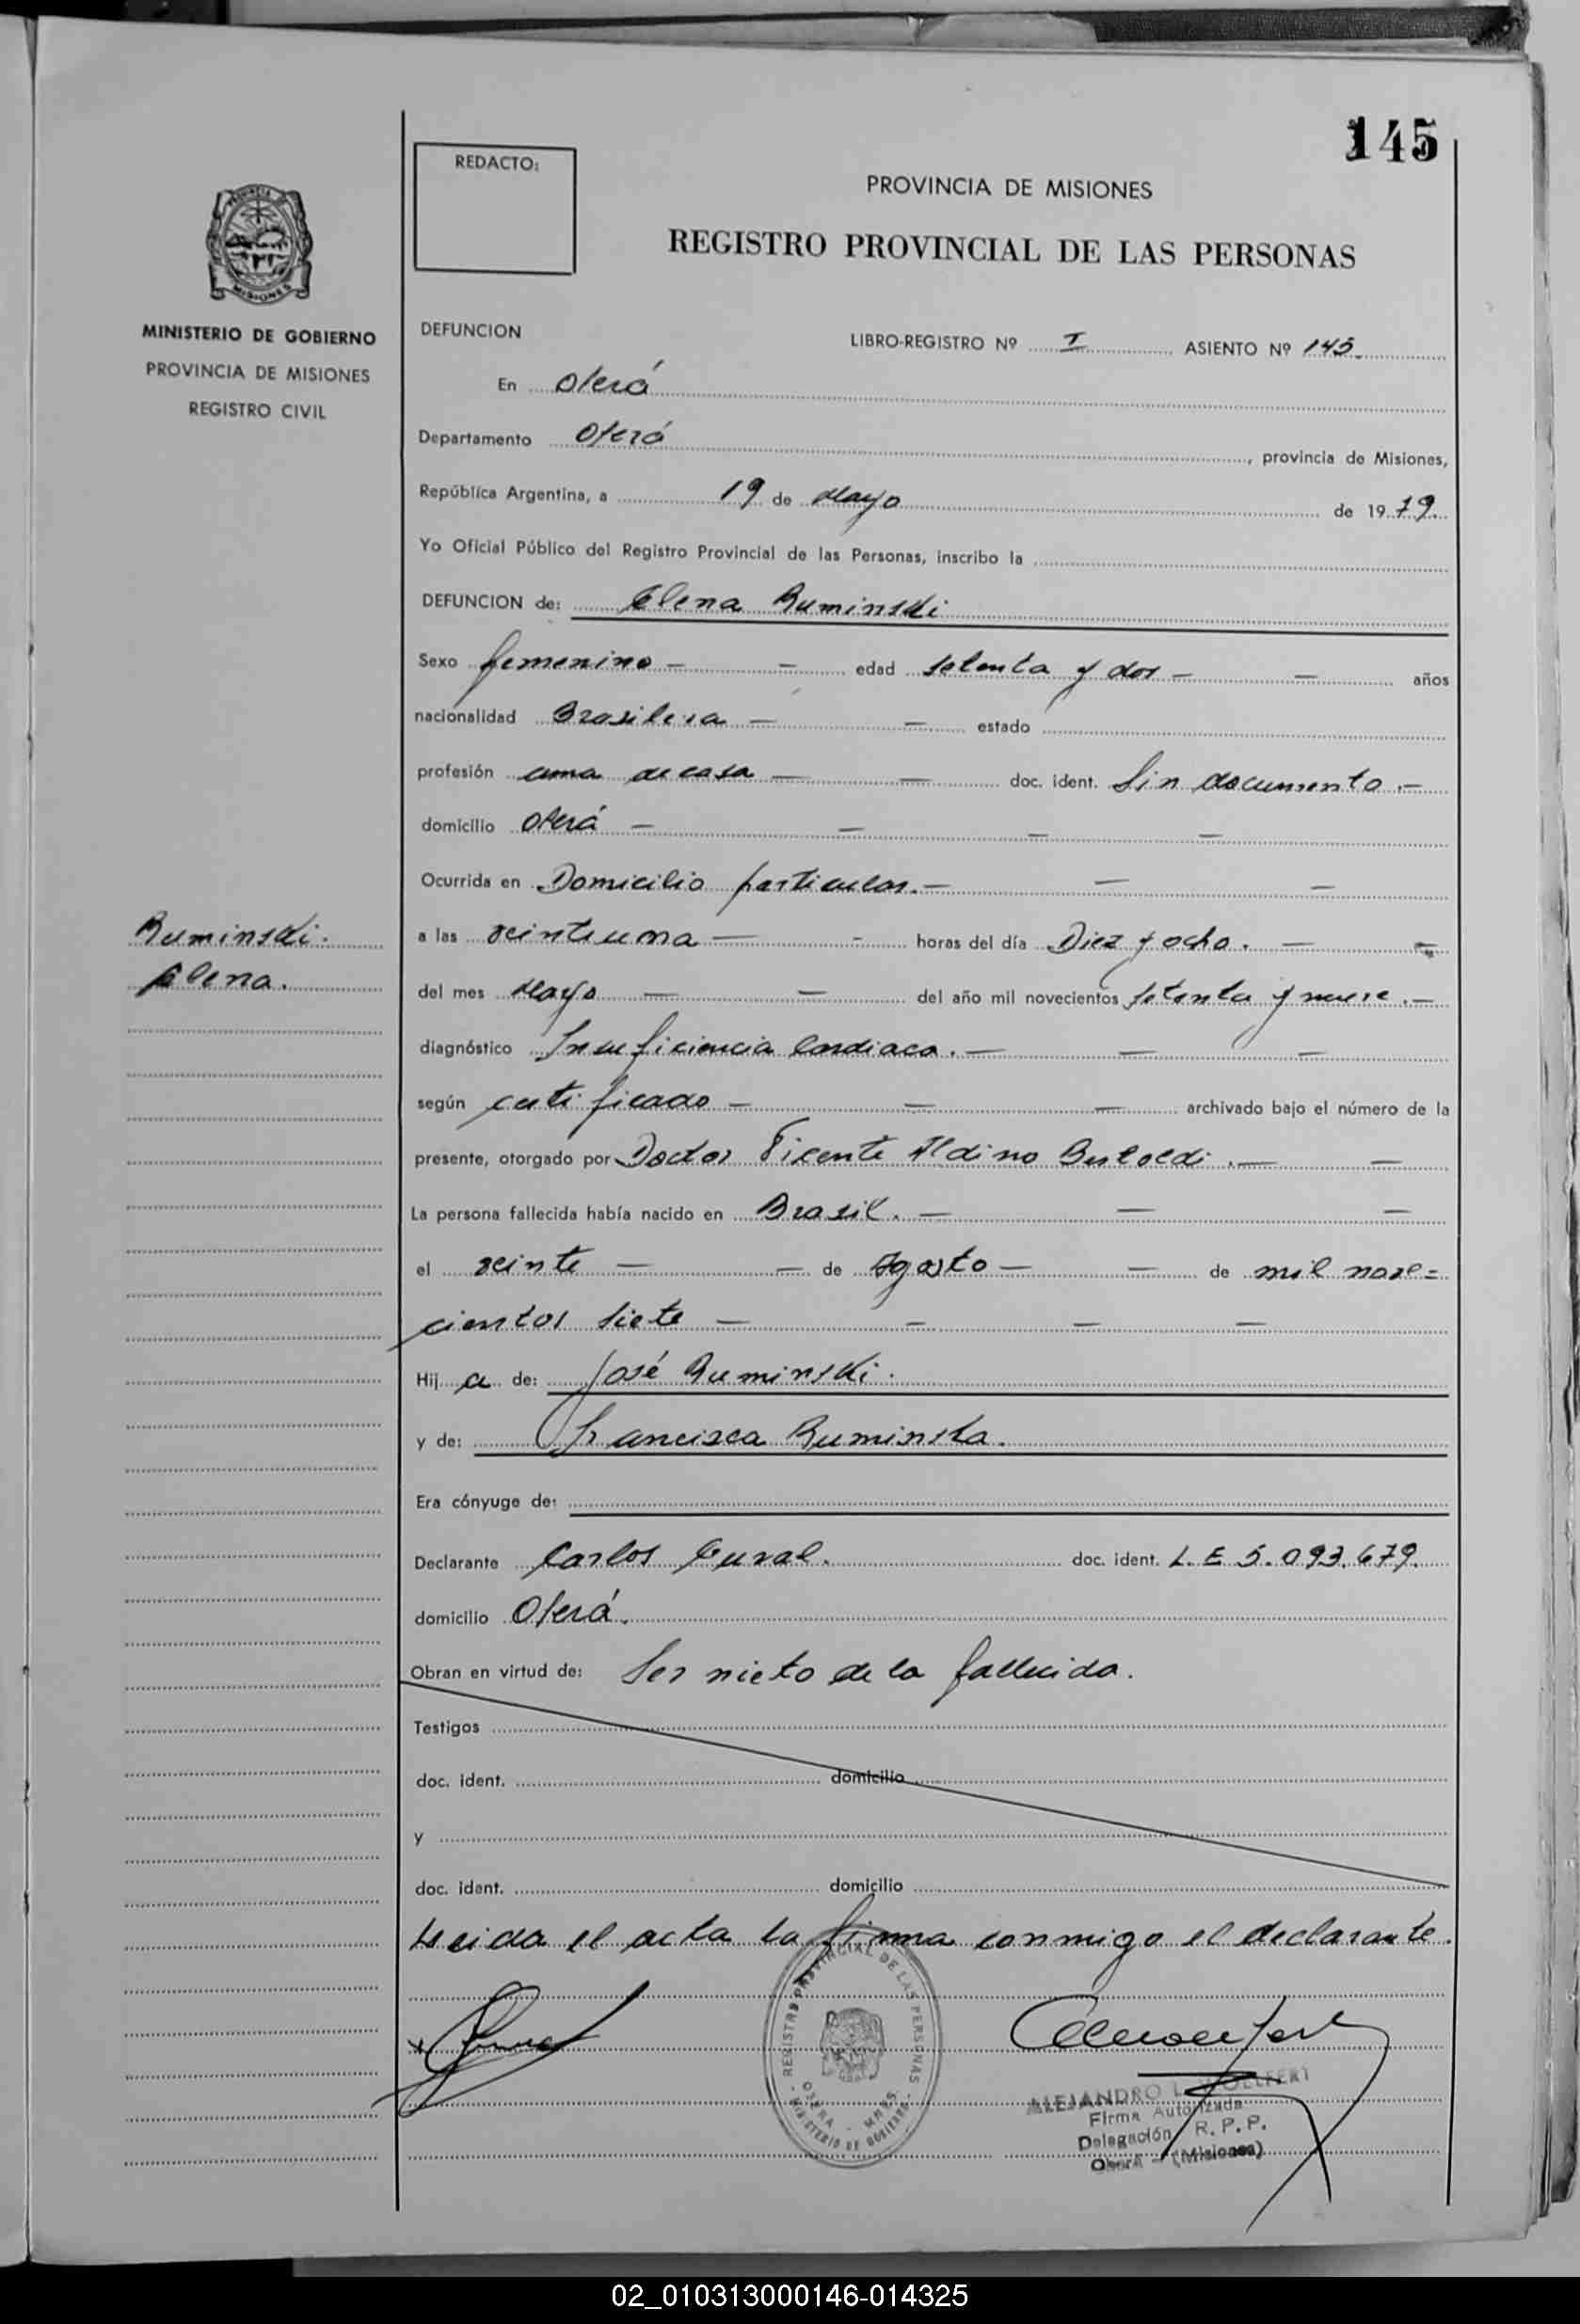 145
REDACTO:
PROVINCIA DE MISIONES
REGISTRO PROVINCIAL DE LAS PERSONAS
MISIONES
MINISTERIO DE GOBIERNO
PROVINCIA DE MISIONES
REGISTRO CIVIL
DEFUNCION
LIBRO-REGISTRO Nº I ASIENTO Nº 145
En Oberá
Departamento Oberá, provincia de Misiones,
República Argentina, a 19 de Mayo de 1979.
Yo Oficial Público del Registro Provincial de las Personas, inscribo la
DEFUNCION de: Elena Ruminski
Sexo femenino — — edad setenta y dos — — años
nacionalidad Brasilera — — estado
profesión ama de casa — — doc. ident. Sin documento.—
domicilio Oberá — — — —
Ocurrida en Domicilio particular.— — —
Ruminski.
Elena.
a las veintiuna — - horas del día Diez y ocho. — —
del mes Mayo — — del año mil novecientos setenta y nueve.—
diagnóstico Insuficiencia Cardiaca.— — —
según certificado — — — archivado bajo el número de la
presente, otorgado por Doctor Vicente Aldino Bertoldi.— —
La persona fallecida había nacido en Brasil. — — —
el veinte — — de Agosto — — de mil nove=
cientos siete — — — —
Hij a de: José Ruminski.
y de: Francisca Ruminska.
Era cónyuge de:
Declarante Carlos Cural. doc. ident. L.E 5.093.679.
domicilio Oberá.
Obran en virtud de: Ser nieto de la fallecida.
Testigos
doc. ident. domicilio
y
doc. ident. domicilio
Leida el acta la firma conmigo el declarante.
REGISTRO PROVINCIAL DE LAS PERSONAS
MINISTERIO DE GOBIERNO
ALEJANDRO L. WOELFERT
Firma Autorizada
Delegación R.P.P.
Oberá - (Misiones)
02_010313000146-014325